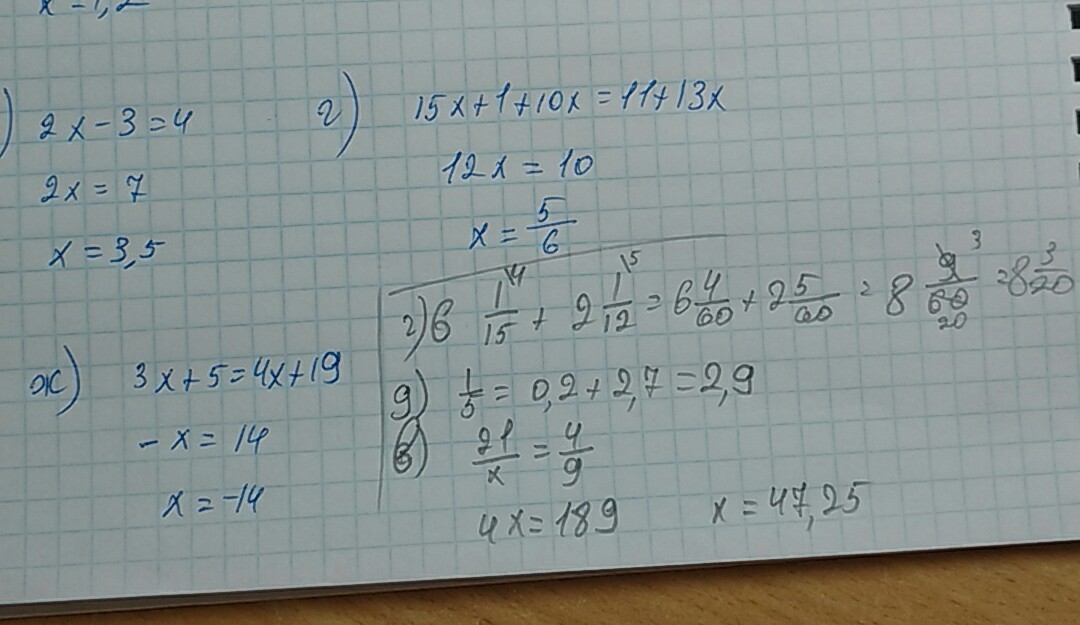 x = 1,2
) 2x - 3 = 4
2x = 7
x = 3,5
г) 15x + 1 + 10x = 11 + 13x
12x = 10
x = 5/6
ж) 3x + 5 = 4x + 19
- x = 14
x = -14
г) 6 1/15 \4 + 2 1/12 \5 = 6 4/60 + 2 5/60 = 8 9/60 3/20 = 8 3/20
д) 1/5 = 0,2 + 2,7 = 2,9
в) 21/x = 4/9
4x = 189 x = 47,25